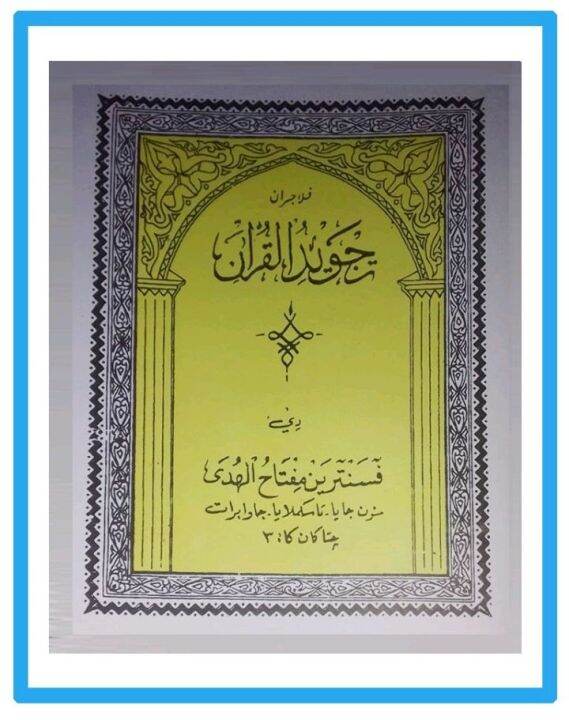 ڤلاجران
تجويد القرآن
دي
ڤَسَنْترَين مِفْتَاحُ الهُدَى
تاسكملايا - جاوا برات
چتاكان كا: ٣